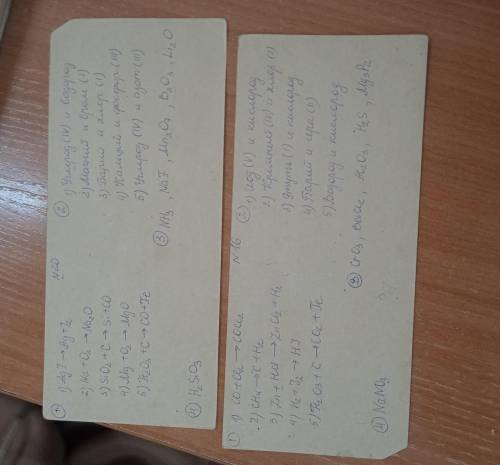 N20
① 1) AgI → Ag + I₂
2) Na + O₂ → Na₂O
3) SiO₂ + C → Si + CO
4) Mg + O₂ → MgO
5) Fe₂O₃ + C → CO + Fe
② 1) Углерод (IV) и водород
2) Магний и бром (I)
3) Барий и хлор (I)
4) Кальций и фосфор (III)
5) Углерод (IV) и азот (III)
③ NH₃, NaI, Mn₂O₇, B₂O₃, Li₂O
④ H₂SiO₃
N16
① 1) CO + Cl₂ → COCl₂
2) CH₄ → C + H₂
3) Zn + HCl → ZnCl₂ + H₂
4) H₂ + I₂ → HI
5) Fe₂O₃ + C → CO₂ + Fe
② 1) Иод (V) и кислород
2) Кремний (IV) и хлор (I)
3) Ртуть (I) и кислород
4) Барий и сера (II)
5) Водород и кислород
③ CrO₃, H₂S, Mg₃P₂
④ NaNO₃